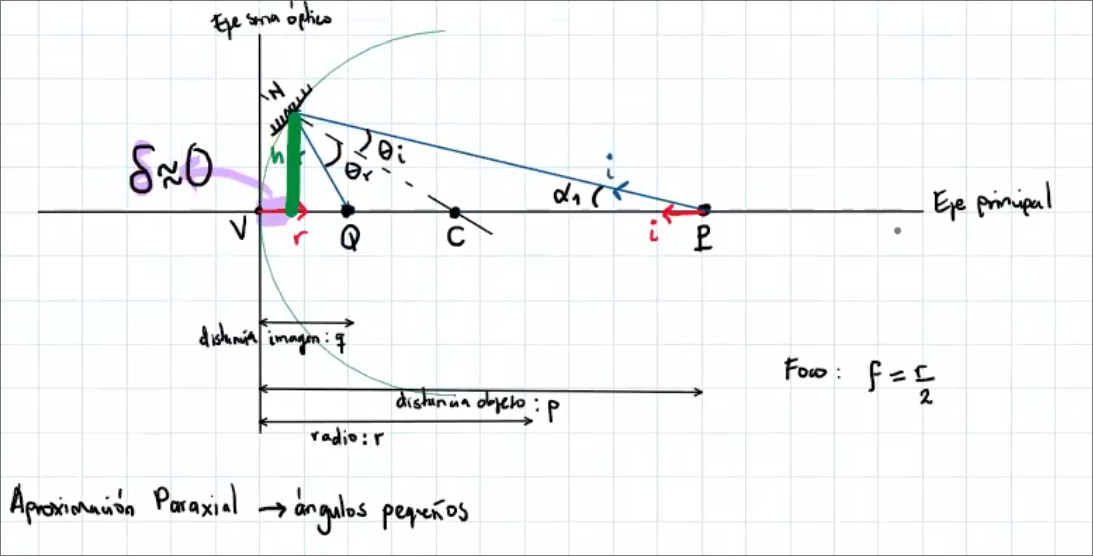 Eje sma óptico
N
h
θi
θr
δ≈0
α₁
i
Eje principal
V
r
Q
C
i
P
distancia imagen: q
distancia objeto: p
radio: r
Foco: f = r/2
Aproximación Paraxial → ángulos pequeños